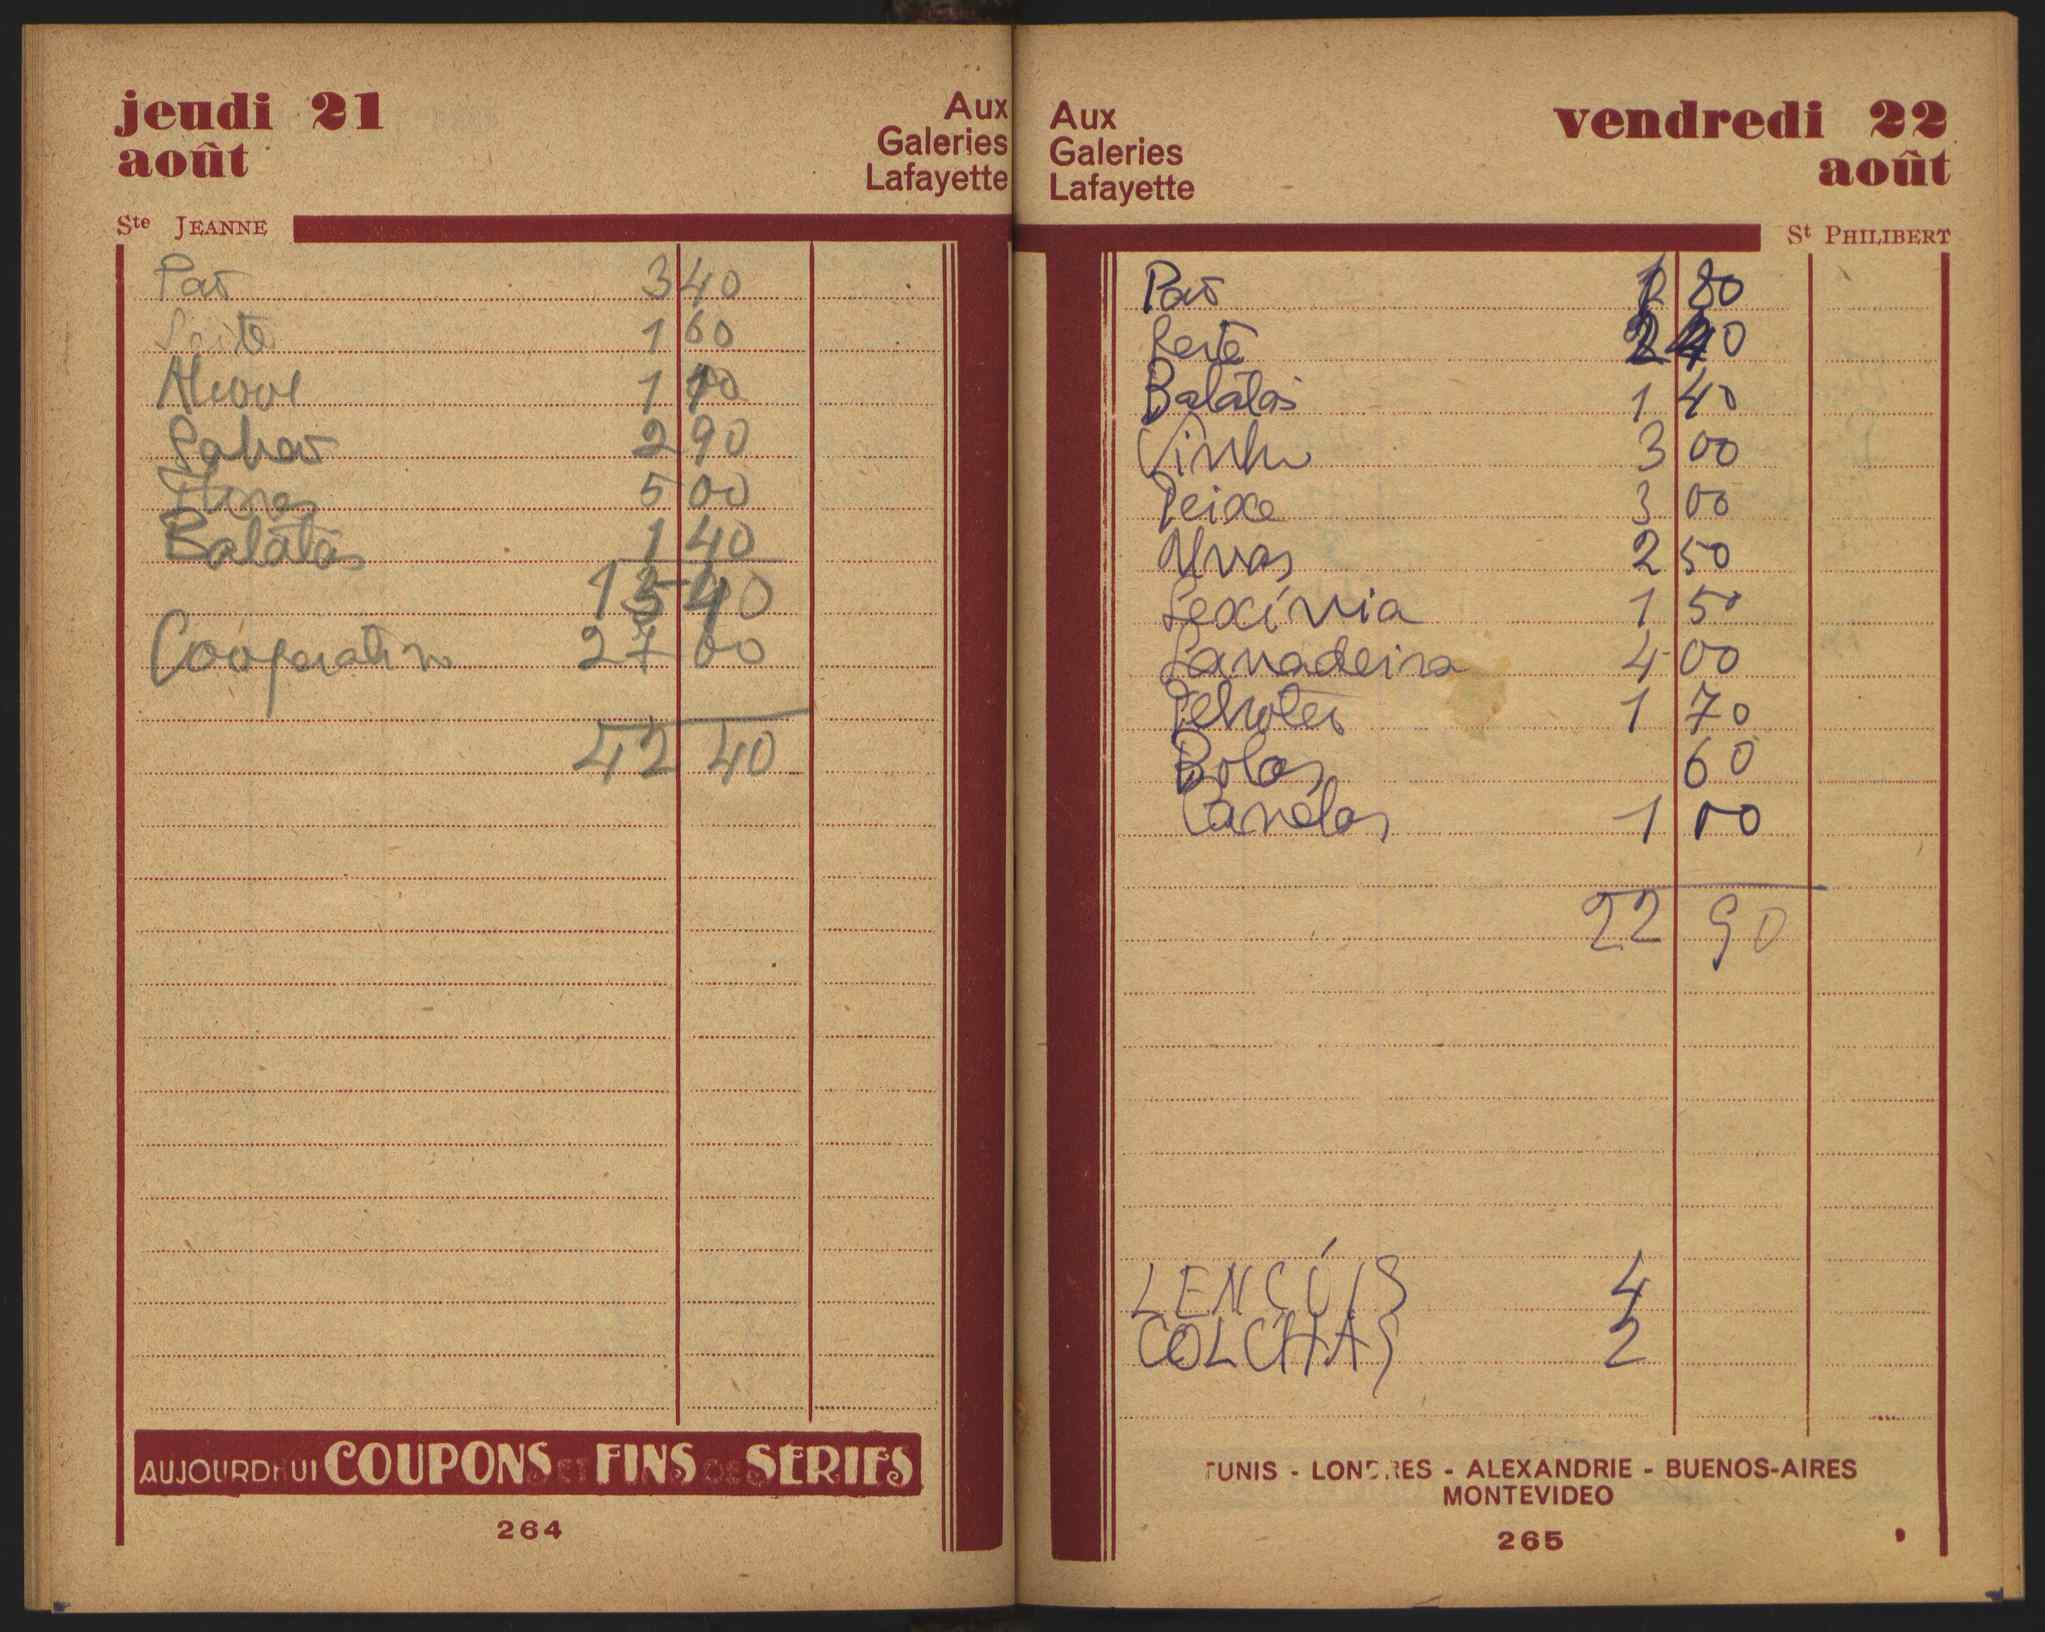 jeudi 21
août
Aux
Galeries
Lafayette
Ste JEANNE
Pão 3 40
Leite 1 60
Alcool 1 10
Sabão 2 90
Flores 5 00
Batatas 1 40
15 40
Cooperativa 27 00
42 40
AUJOURD'HUI COUPONS ET FINS DE SERIES
264
Aux
Galeries
Lafayette
vendredi 22
août
St PHILIBERT
Pão 80
Leite 2 40
Batatas 1 40
Vinho 3 00
Peixe 3 00
Uvas 2 50
Lexívia 1 50
Lavadeira 4 00
1 70
Bolos 60
Canelas 1 00
22 90
LENÇÓIS 4
COLCHAS 2
TUNIS - LONDRES - ALEXANDRIE - BUENOS-AIRES
MONTEVIDEO
265